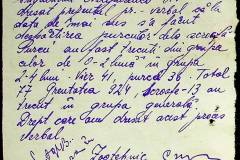 dresat prezentul pr.-verbal că la
data de mai sus s'a făcut
despărțirea purceilor dela scroafe
Purcei au fost trecuți din grupa
celor de 0-2 luni în grupa
2-4 luni. Vier 41, purcea 36. Total
77 Greutatea 924 scroafe-13 au
trecut în grupa generală.
Drept care am dresat acest proces
verbal.
Zootehnic